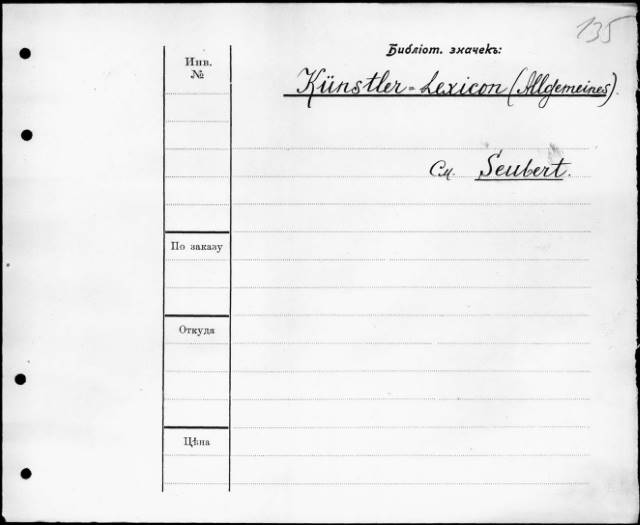 135
Библіот. значекъ:
Инв.
№
Künstler-Lexicon (Allgemeines).
См. Seubert.
По заказу
Откуда
Цѣна